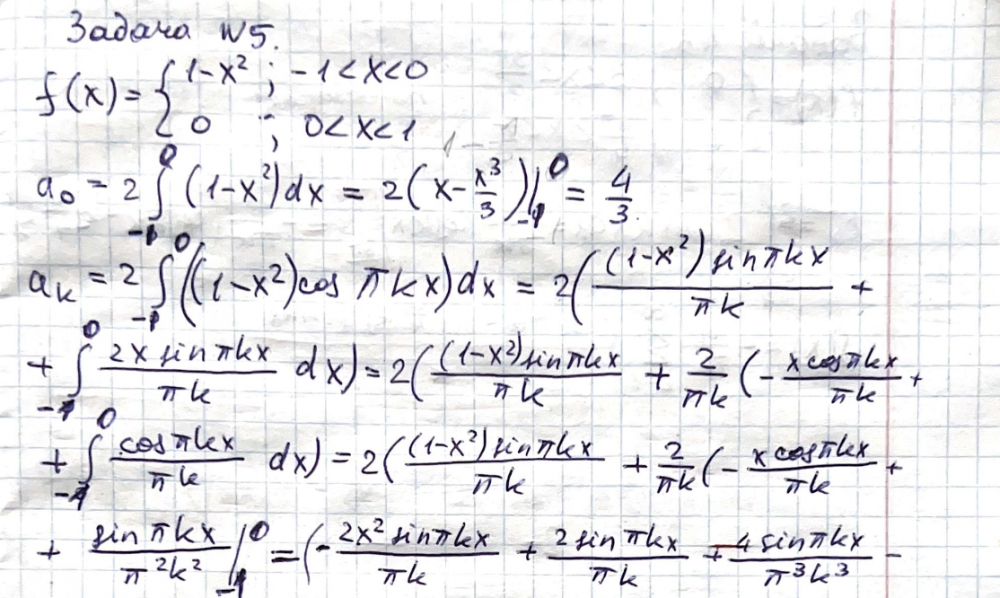 Задача №5.
f(x) = { 1-x² ; -1<x<0
0 ; 0<x<1
a₀ = 2 ∫₋₁⁰ (1-x²)dx = 2(x - x³/3)|₋₁⁰ = 4/3.
aₖ = 2 ∫₋₁⁰ ((1-x²)cos πkx)dx = 2( (1-x²) sinπkx / πk +
+ ∫₋₁⁰ 2x sinπkx / πk dx) = 2( (1-x²)sinπkx / πk + 2/πk (- x cosπkx / πk +
+ ∫₋₁⁰ cosπkx / πk dx) = 2( (1-x²)sinπkx / πk + 2/πk (- x cosπkx / πk +
+ sinπkx / π²k² |₋₁⁰ = (- 2x² sinπkx / πk + 2 sinπkx / πk + 4 sinπkx / π³k³ -